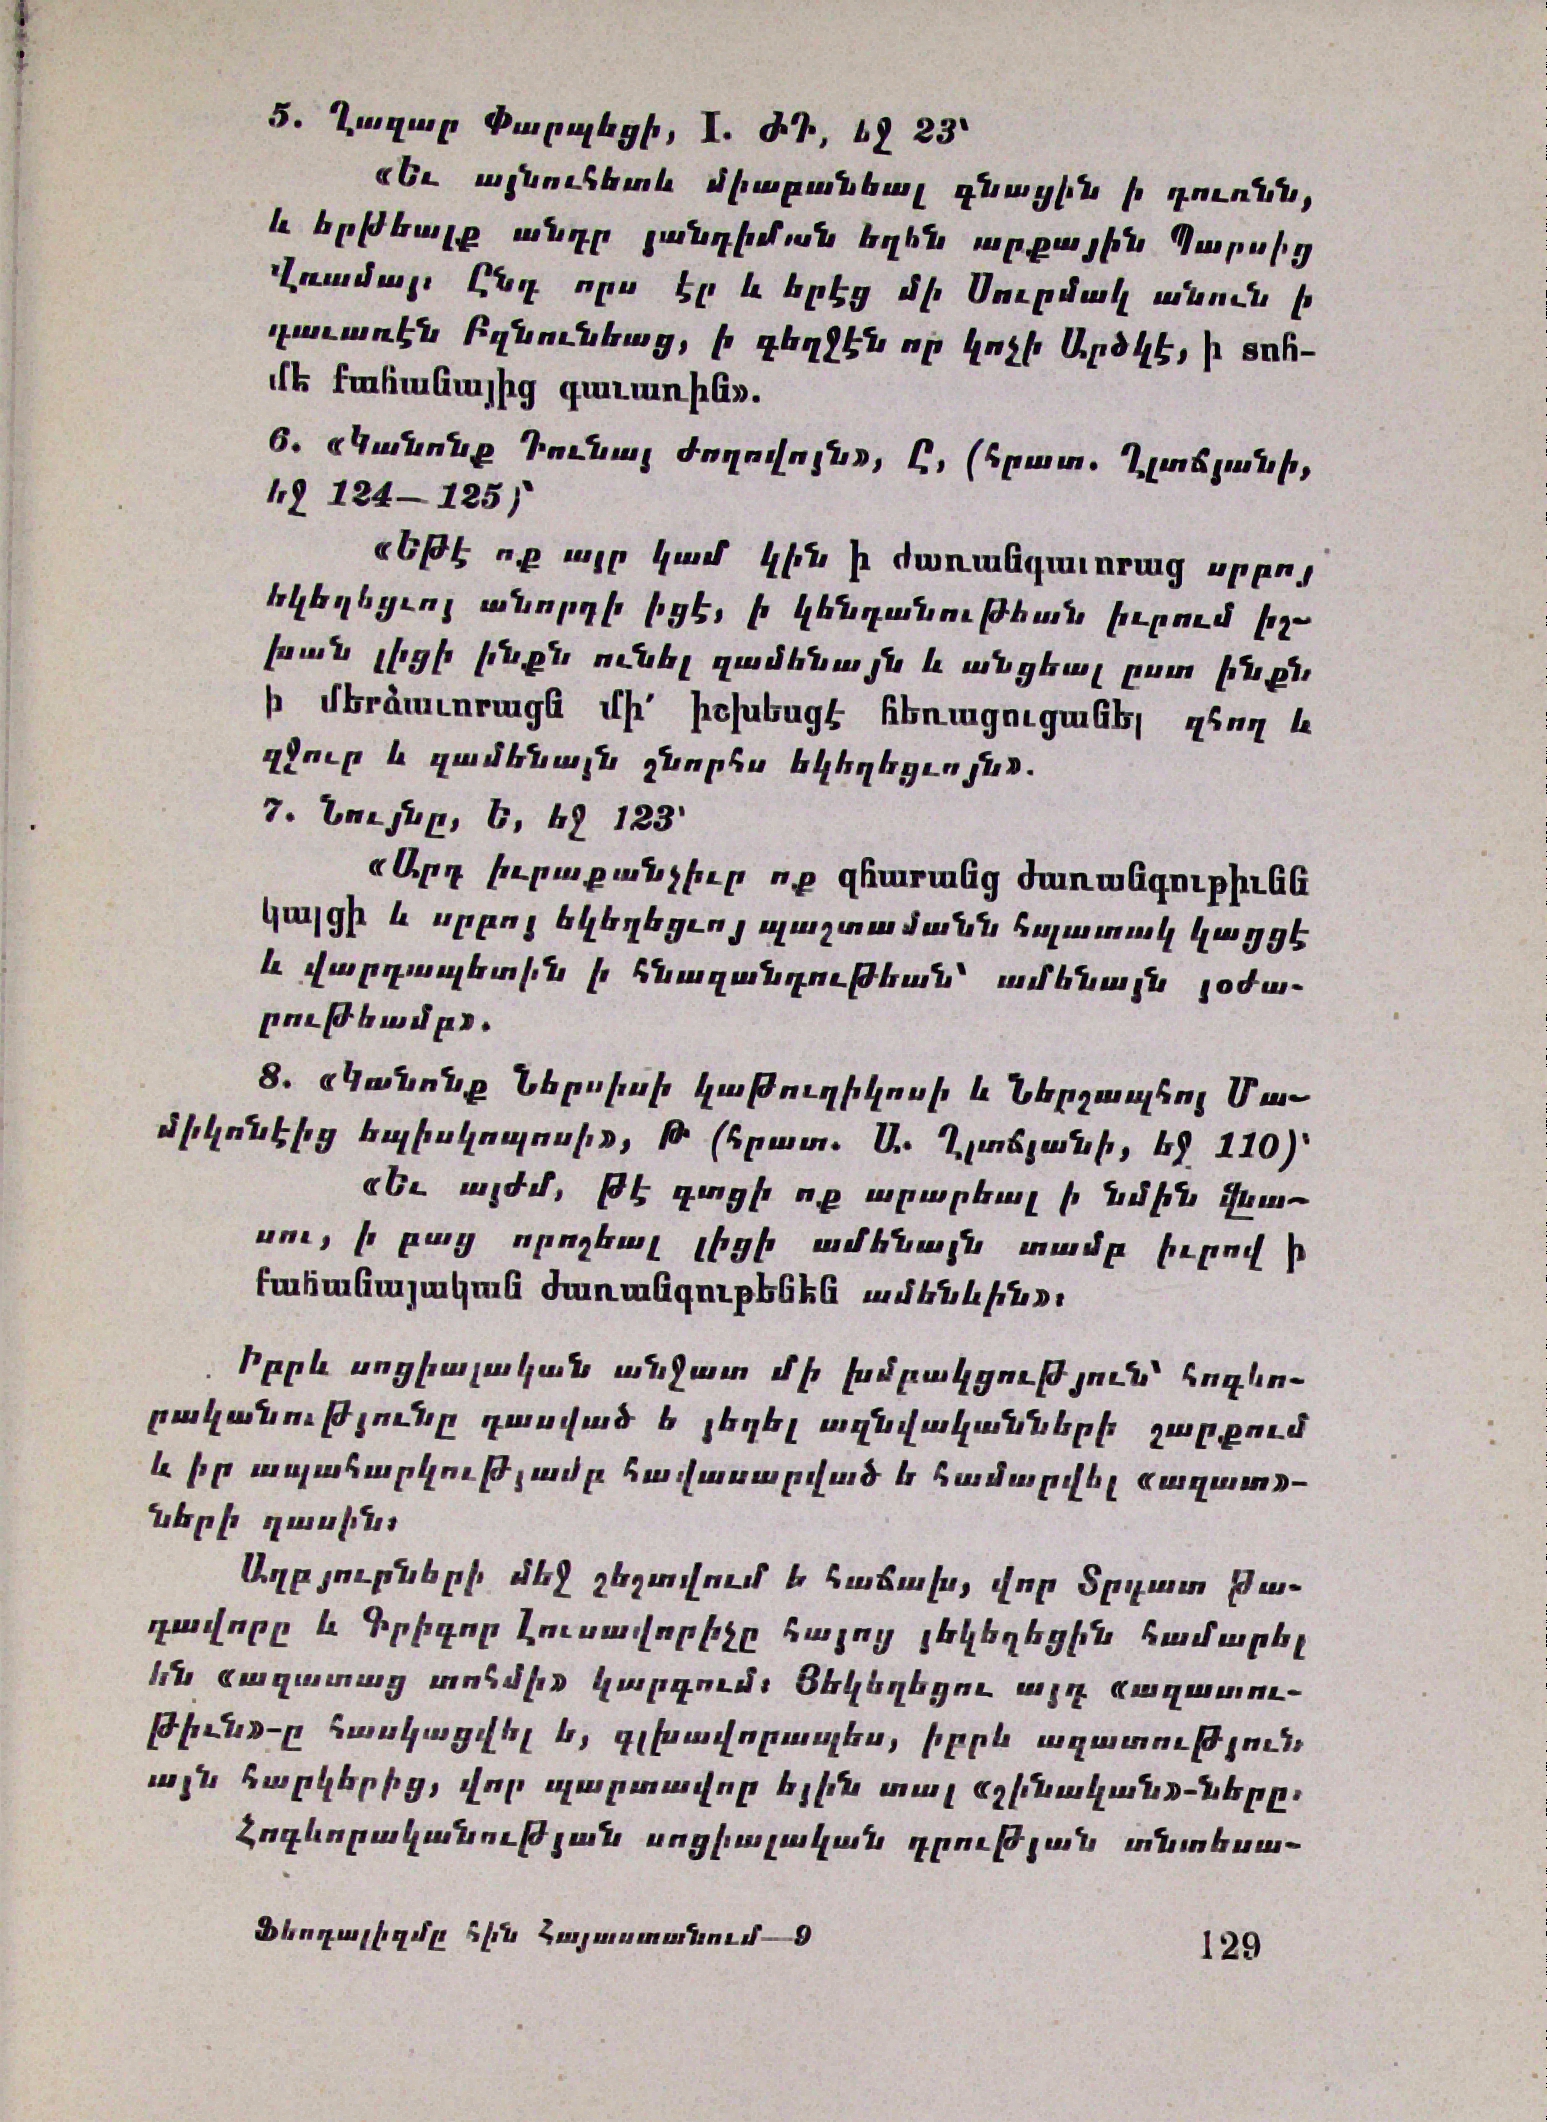 5. Ղազար Փարպեցի, I. ԺԴ, եջ 23՝
«Եւ այնուհետև միաբանեալ գնացին ի դուռնն,
և երթեալք անդր յանդիման եղեն արքային Պարսից
Վռամայ։ Ընդ որս էր և երէց մի Սուրմակ անուն ի
գաւառէն Բզնունեաց, ի գեղջէն որ կոչի Արծկէ, ի տոհ-
մէ քահանայից գաւառին».
6. «Կանոնք Դունայ ժողովոյն», Ը, (հրատ. Ղլտճյանի,
եջ 124—125)՝
«Եթէ ոք այր կամ կին ի ժառանգաւորաց սրբոյ
եկեղեցւոյ անորդի իցէ, ի կենդանութեան իւրում իշ-
խան լիցի ինքն ունել զամենայն և անցեալ ըստ ինքն
ի մերձաւորացն մի՛ իշխեսցէ հեռացուցանել զհող և
զջուր և զամենայն շնորհս եկեղեցւոյն».
7. Նույնը, Ե, եջ 123՝
«Արդ իւրաքանչիւր ոք զհարանց ժառանգութիւնն
կայցի և սրբոյ եկեղեցւոյ պաշտամանն հպատակ կացցէ
և վարդապետին ի հնազանդութեան՝ ամենայն յօժա-
րութեամբ».
8. «Կանոնք Ներսիսի կաթուղիկոսի և Ներշապհոյ Մա-
միկոնէից եպիսկոպոսի», Թ (հրատ. Ա. Ղլտճյանի, եջ 110)՝
«Եւ այժմ, թէ գտցի ոք արարեալ ի նմին վնա-
սու, ի բաց որոշեալ լիցի ամենայն տամբ իւրով ի
քահանայական ժառանգութենէն ամենևին»։
Իբրև սոցիալական անջատ մի խմբակցություն՝ հոգևո-
րականությունը դասված ե յեղել ազնվականների շարքում
և իր ապահարկությամբ հավասարված ե համարվել «ազատ»-
ների դասին։
Աղբյուրների մեջ շեշտվում ե հաճախ, վոր Տրդատ թա-
գավորը և Գրիգոր Լուսավորիչը հայոց յեկեղեցին համարել
են «ազատաց տոհմի» կարգում։ Յեկեղեցու այդ «ազատու-
թիւն»-ը հասկացվել ե, գլխավորապես, իբրև ազատություն
այն հարկերից, վոր պարտավոր եյին տալ «շինական»-ները։
Հոգևորականության սոցիալական դրության տնտեսա-
Ֆեոդալիզմը հին Հայաստանում—9
129